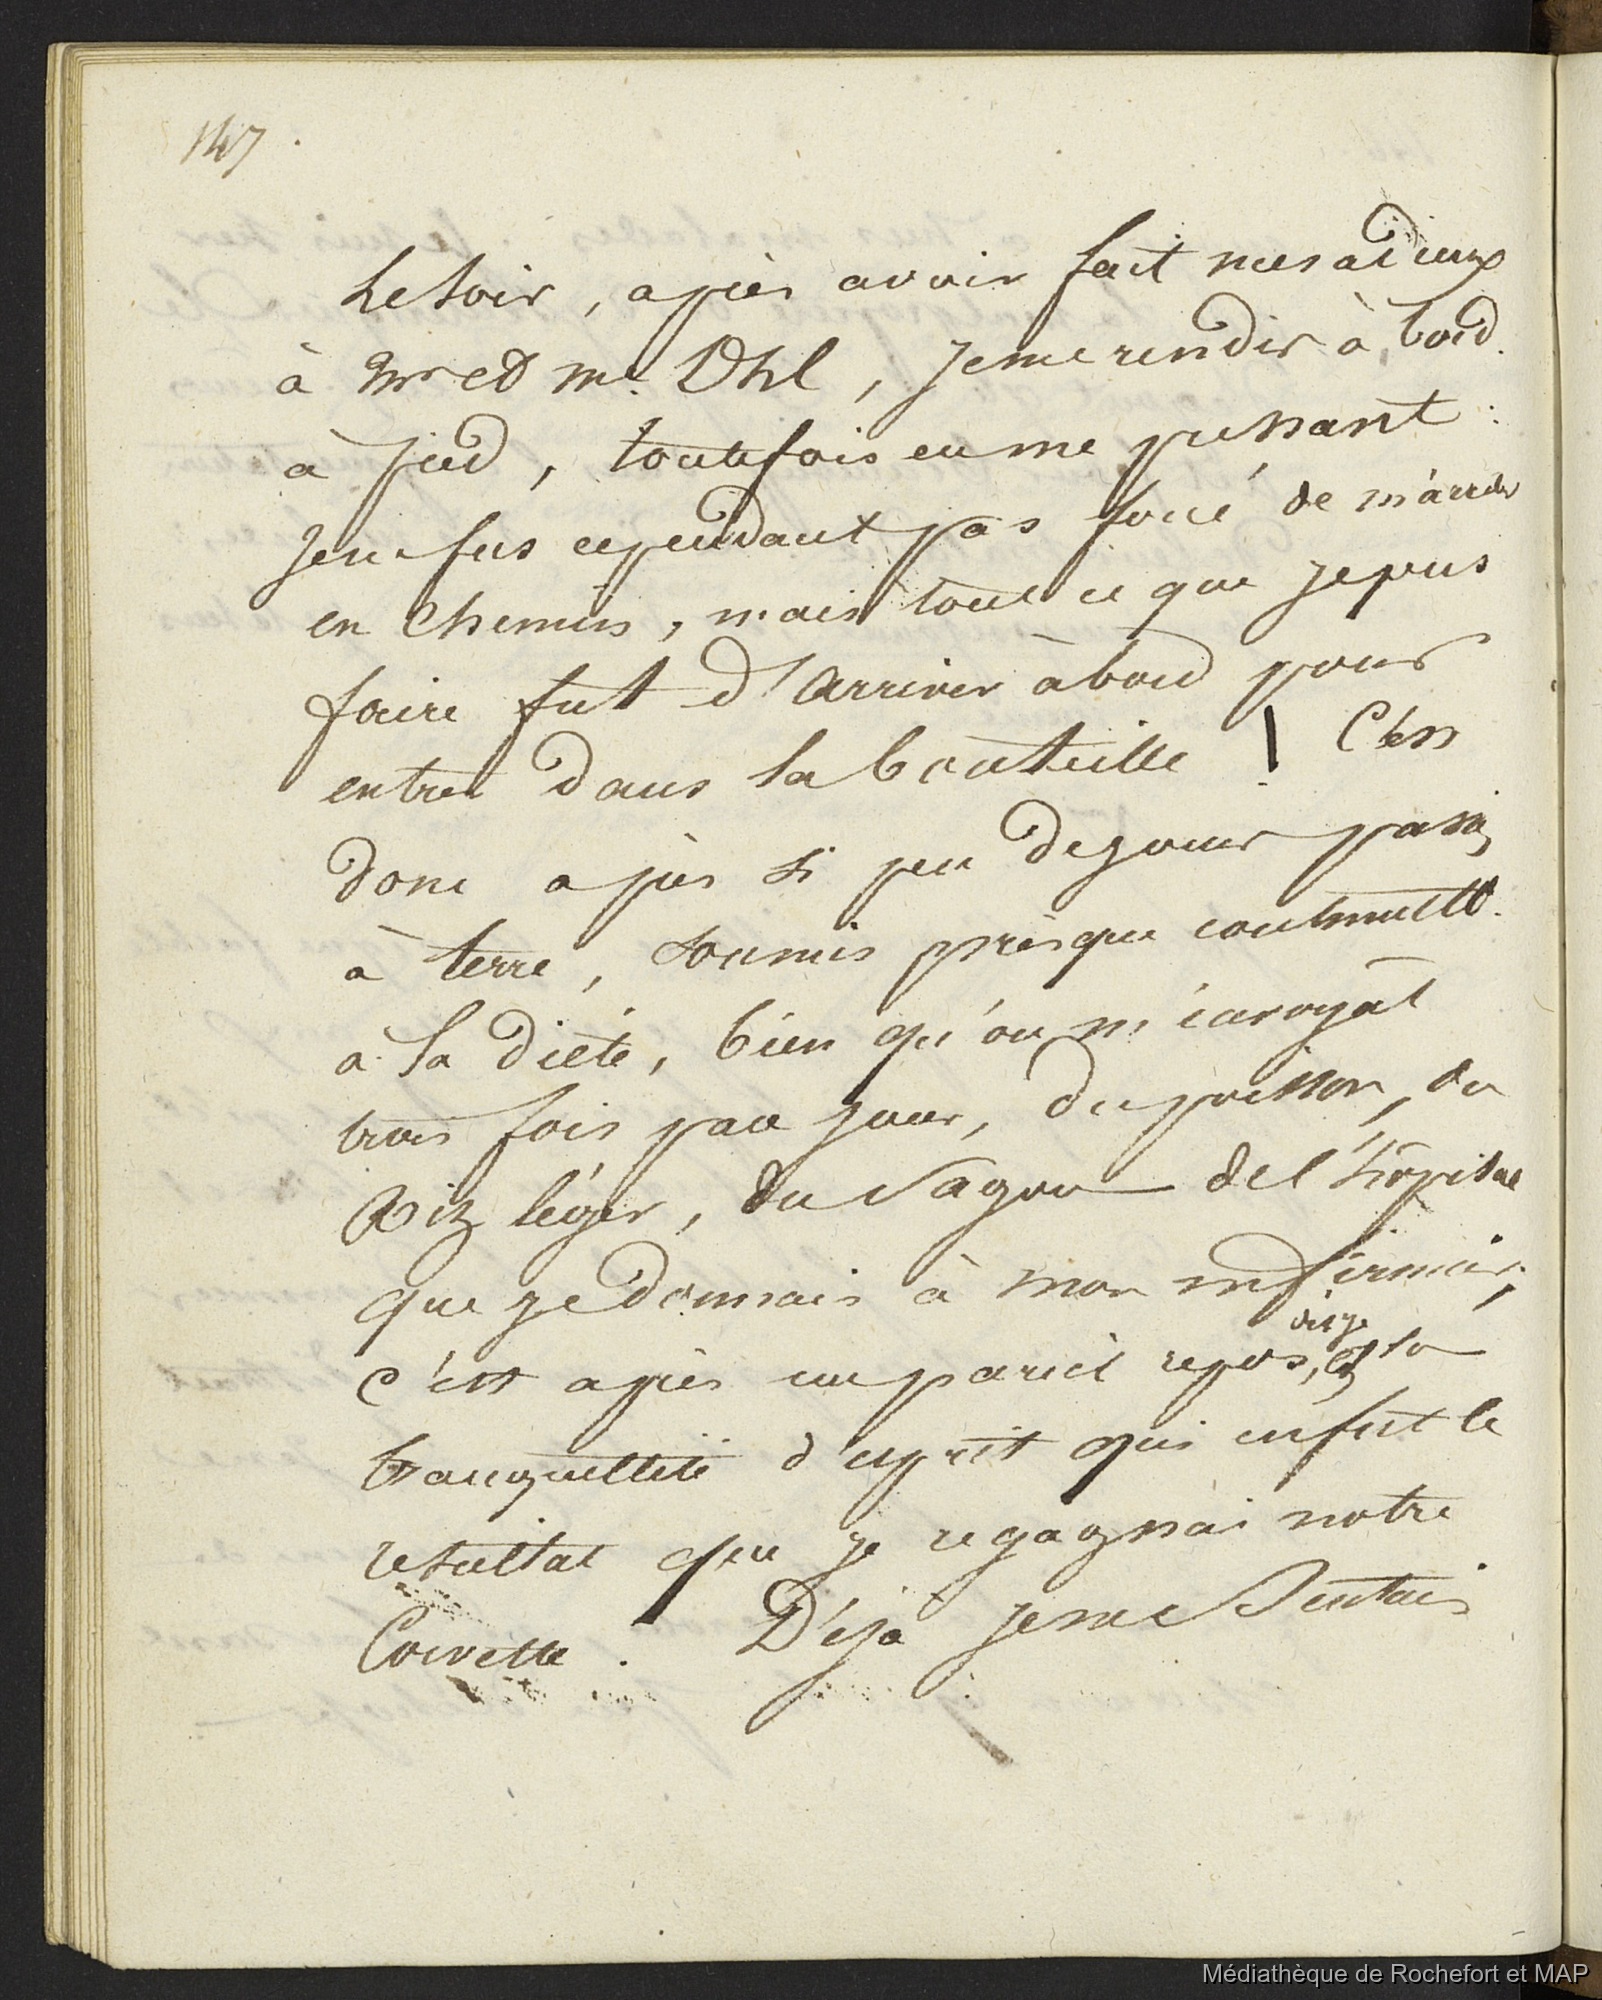 147.
Le soir, après avoir fait mes adieux
à Mr et Me. Uhl, je me rendis à bord
à pied, toutefois en me pressant :
Je ne fus cependant pas forcé de m'arrêter
en chemin, mais tout ce que je pus
faire fut d'arriver à bord pour
entrer dans la bouteille ! C'est
donc après si peu de jours passés
à terre, soumis presque continuellt.
à la diète, bien qu'on m'envoyât
trois fois par jour, du poisson, du
Riz léger, du Sagou de l'hôpital
que je donnais à mon infirmier,
dis-je
c'est après un pareil repos, et la
tranquillité d'esprit qui en fut le
résultat que je regagnai notre
Corvette. Déjà je me sentais
Médiathèque de Rochefort et MAP